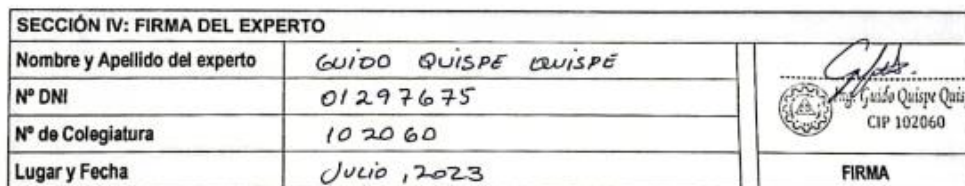 SECCIÓN IV: FIRMA DEL EXPERTO
Nombre y Apellido del experto GUIDO QUISPE QUISPE
Nº DNI 01297675
Nº de Colegiatura 102060
Lugar y Fecha Julio, 2023
Ing. Guido Quispe Quis
CIP 102060
FIRMA